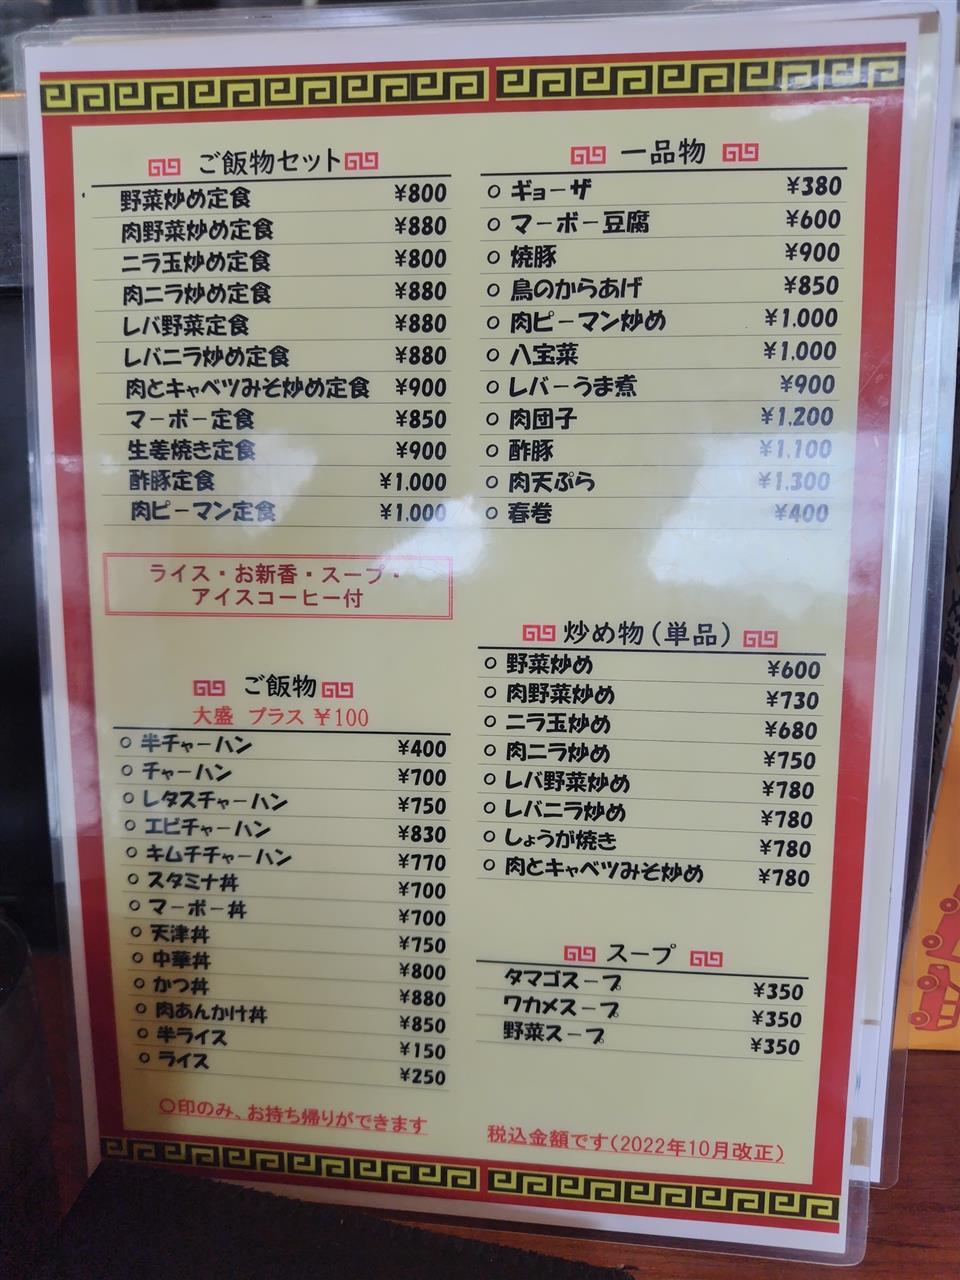 ご飯物セット
野菜炒め定食 ¥800
肉野菜炒め定食 ¥880
ニラ玉炒め定食 ¥800
肉ニラ炒め定食 ¥880
レバ野菜定食 ¥880
レバニラ炒め定食 ¥880
肉とキャベツみそ炒め定食 ¥900
マーボー定食 ¥850
生姜焼き定食 ¥900
酢豚定食 ¥1,000
肉ピーマン定食 ¥1,000
ライス・お新香・スープ・
アイスコーヒー付
ご飯物
大盛 プラス ¥100
○ 半チャーハン ¥400
○ チャーハン ¥700
○ レタスチャーハン ¥750
○ エビチャーハン ¥830
○ キムチチャーハン ¥770
○ スタミナ丼 ¥700
○ マーボー丼 ¥700
○ 天津丼 ¥750
○ 中華丼 ¥800
○ かつ丼 ¥880
○ 肉あんかけ丼 ¥850
○ 半ライス ¥150
○ ライス ¥250
○印のみ、お持ち帰りができます
一品物
○ ギョーザ ¥380
○ マーボー豆腐 ¥600
○ 焼豚 ¥900
○ 鳥のからあげ ¥850
○ 肉ピーマン炒め ¥1,000
○ 八宝菜 ¥1,000
○ レバーうま煮 ¥900
○ 肉団子 ¥1,200
○ 酢豚 ¥1,100
○ 肉天ぷら ¥1,300
○ 春巻 ¥400
炒め物(単品)
○ 野菜炒め ¥600
○ 肉野菜炒め ¥730
○ ニラ玉炒め ¥680
○ 肉ニラ炒め ¥750
○ レバ野菜炒め ¥780
○ レバニラ炒め ¥780
○ しょうが焼き ¥780
○ 肉とキャベツみそ炒め ¥780
スープ
タマゴスープ ¥350
ワカメスープ ¥350
野菜スープ ¥350
税込金額です(2022年10月改正)